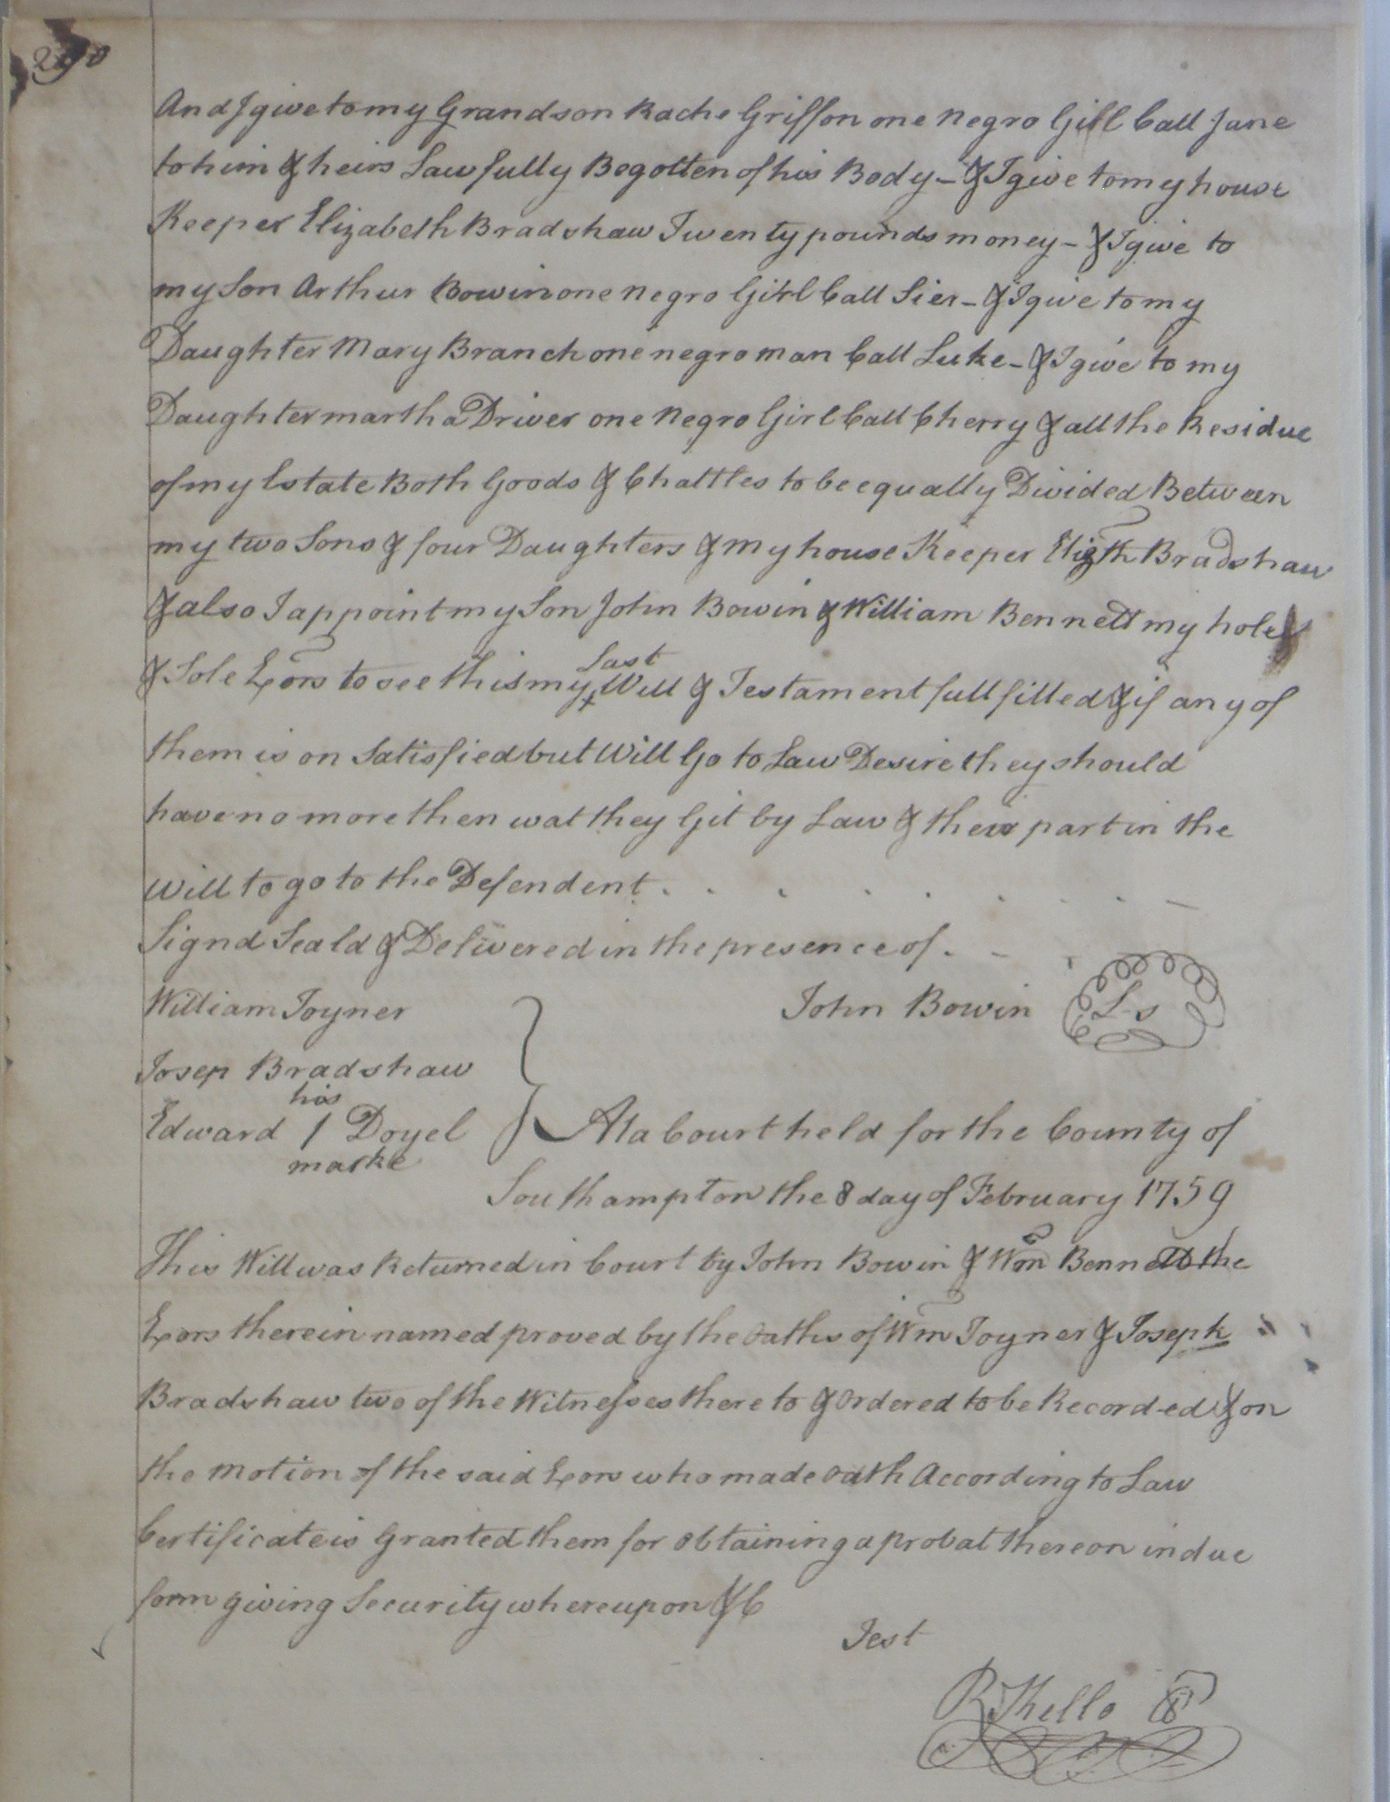 And I give to my Grandson Rache Griffon one negro Girl Call Jane
to him & heirs Lawfully Begotten of his Body - & I give to my house
Keeper Elizabeth Bradshaw Twenty pounds money - & I give to
my Son Arthur Bowin one negro Girl Call Sier - & I give to my
Daughter Mary Branch one negro man Call Luke - & I give to my
Daughter martha Driver one Negro Girl Call Cherry & all the Residue
of my Estate Both Goods & Chattles to be equally Divided Between
my two Sons & four Daughters & my house Keeper Elizth Bradshaw
& also I appoint my Son John Bowin & William Bennett my hole
& Sole Exors to see this my Last Will & Testament full filled & if any of
them is on Satisfied but Will Go to Law Desire they should
have no more then wat they Git by Law & their part in the
will to go to the Defendent
Signd Seald & Delivered in the presence of
William Joyner John Bowin L-s
Josep Bradshaw
his
Edward 1 Doyel At a Court held for the County of
marke
Southampton the 8 day of February 1759
This Will was Returned in Court by John Bowin & Wm Bennett the
Exors therein named proved by the oaths of Wm Joyner & Joseph
Bradshaw two of the Witnesses there to & ordered to be Recorded & on
the motion of the said Exors who made oath According to Law
Certificate is Granted them for obtaining a probat thereon in due
form giving Security whereupon &C
Test
R Kello